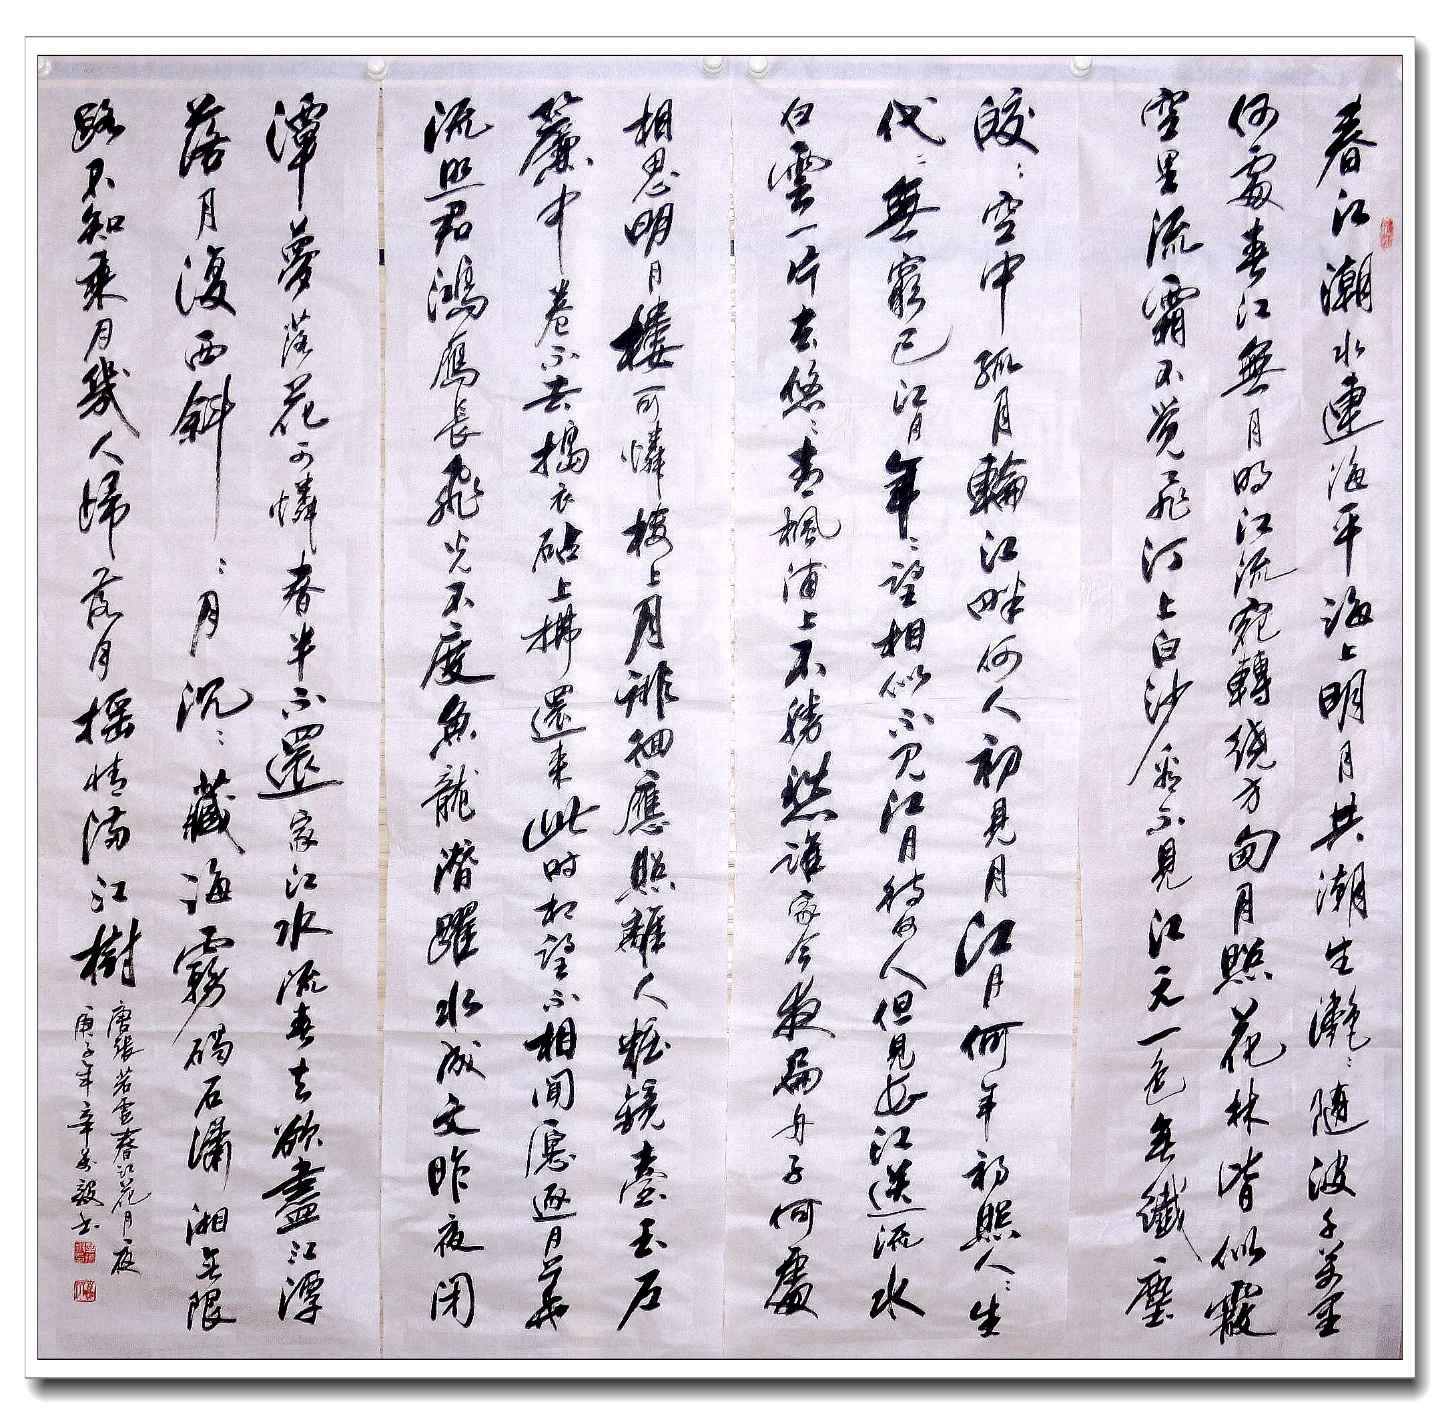 春江潮水連海平海上明月共潮生灧〻随波千萬里
何處春江無月明江流宛轉繞芳甸月照花林皆似霰
空里流霜不觉飛汀上白沙看不見江天一色無纖塵
皎〻空中孤月輪江畔何人初見月江月何年初照人〻生
代〻無窮已江月年〻望相似不見江月待何人但見長江送流水
白雲一片去悠〻青楓浦上不勝愁誰家今夜扁舟子何處
相思明月樓可憐樓上月徘徊應照離人粧鏡臺玉户
簾中卷不去搗衣砧上拂還来此时相望不相聞愿逐月華
流照君鴻雁長飛光不度魚龍潛躍水成文昨夜閑
潭夢落花可憐春半不還家江水流春去欲盡江潭
落月復西斜〻月沉〻藏海霧碣石瀟湘無限
路不知乘月幾人歸落月摇情满江樹
唐張若虚春江花月夜
庚子年辛萬毅书